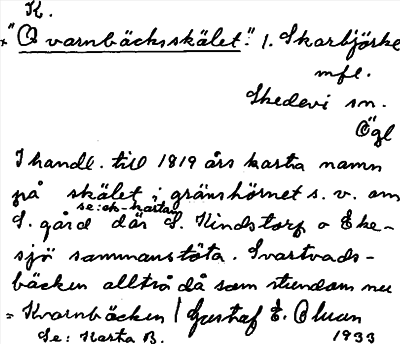 K.
x "Qvarnbäcksskälet". 1. Skarbjörke
mfl.
Skedevi sn.
Ögl
I handl. till 1819 års karta namn
på skälet i gränshörnet s. v. om
se: ek-kartan
S. gård där S. Kindstorp o Eke-
sjö sammanstöta. Svartvads-
bäcken alltså då som stundom nu
= Kvarnbäcken / Gustaf E. Olsson
Se: Karta B. 1933